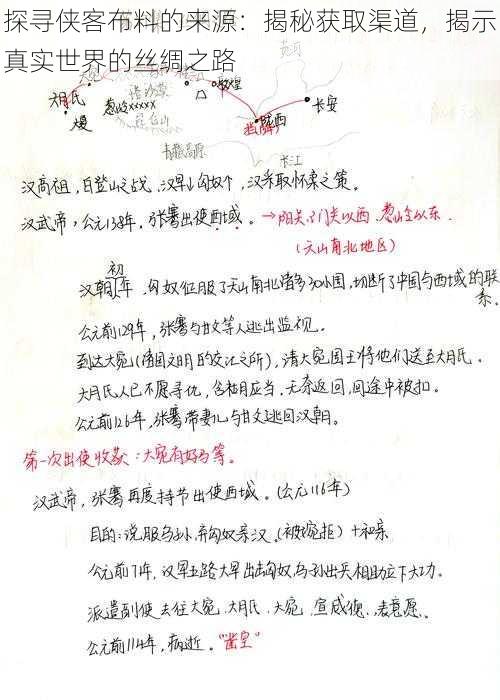 探寻侠客布料的来源：揭秘获取渠道，揭示
真实世界的丝绸之路
黄河
大宛
敦煌
大月氏
塔沙漠
长安
大夏
葱岭xxxxx
昆仑山
陇西
青藏高原
长江
汉高祖，白登山之战，汉早↓匈奴个，汉采取怀柔之策。
汉武帝，公元138年，张骞出使西域。→阳关、门关以西，葱岭以东．
（天山南北地区）
初
汉朝年，匈奴征服了天山南北诸多30小国，切断了中国与西域的联
系．
公元前129年，张骞与甘文等人逃出监视．
到达大宛（诸国文明的交汇之所），请大宛国王将他们送至大月氏．
大月氏人已不愿寻仇，无奈返回，回途中被扣。
公元前126年，张骞带妻儿与甘文逃回汉朝。
第一次出使收获：大宛有好马等。
汉武帝，张骞再度持节出使西域。（公元116年）
目的：说服乌孙，弃匈奴亲汉．（被婉拒）+和亲
公元前71年，汉早五路大早出击匈奴，乌孙出兵相助立下大功。
派遣副使去往大宛．大月氏．大宛．宣威德．表意愿．
公元前114年，病逝。"凿空"